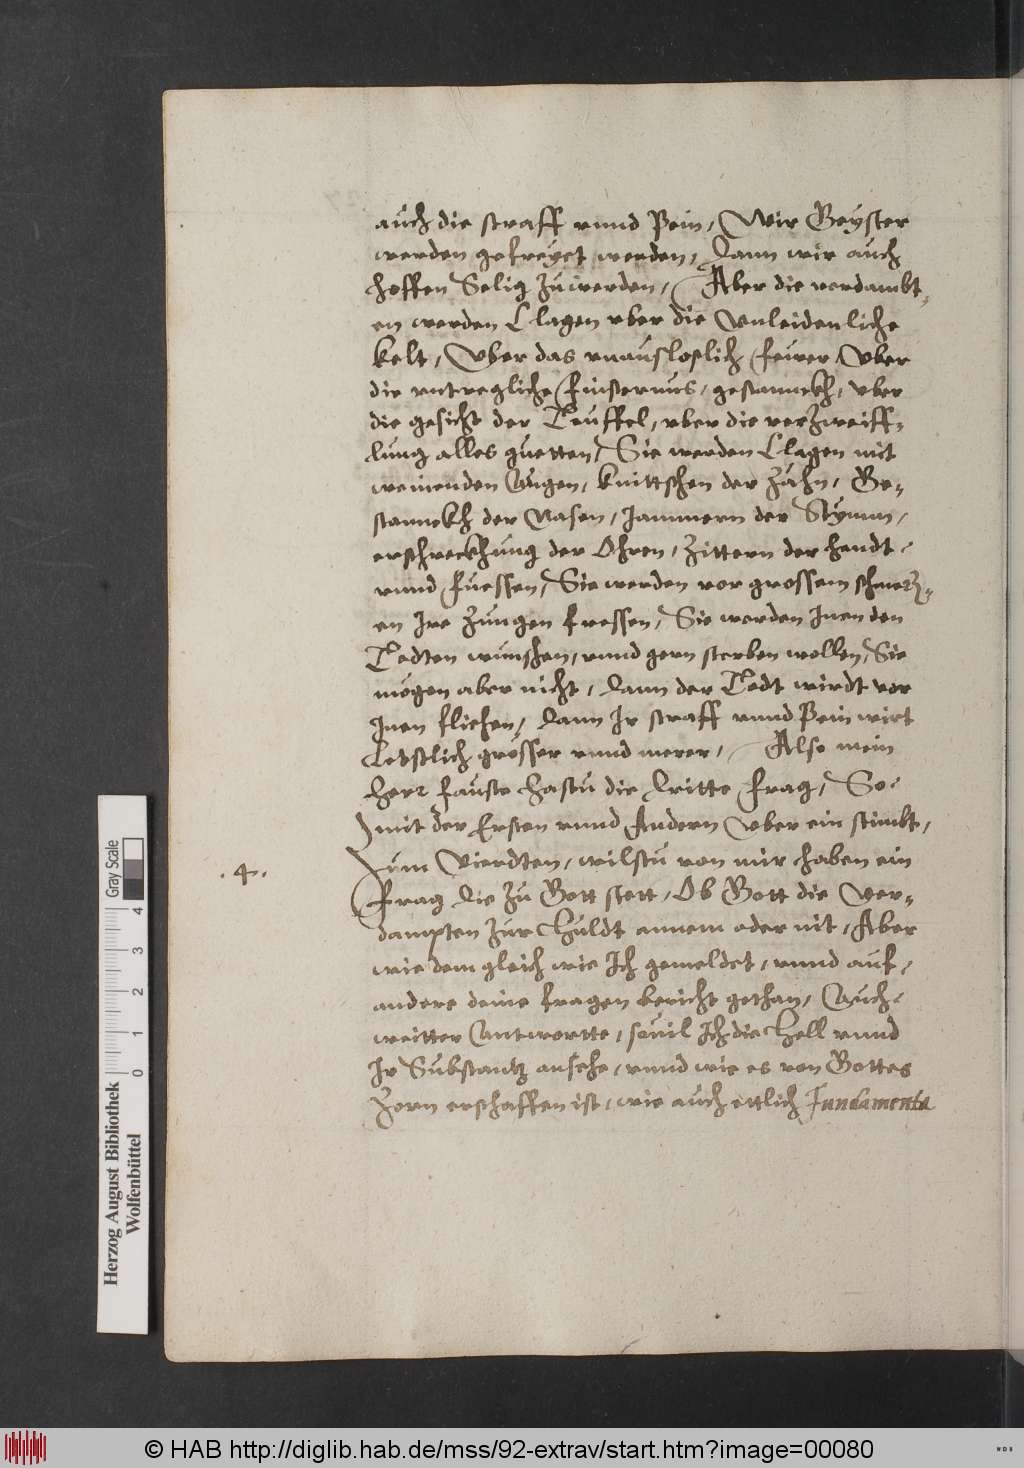 auch die straff vnnd Pein, Wir Geyster
werden gefreyet werden, dann wir auch
hoffen Selig zuwerden, Aber die verdambt,,
en werden Clagen vber die Vnleidenliche
kelt, Vber das vnausloslich feurer, Vber
die vntregliche finsternus, gestannckh, vber
die gesicht der Teuffel, vber die verzweiff,,
lung alles guetten, Sie werden Clagen mit
weinenden Augen, knittschen der Zähn, Ge,,
stannckh der Nasen, Jammern der Stymm,
erschreckhung der Ohren, Zittern der hendt,
vnnd fuessen, Sie werden vor grossem schmertz,,
en Ire Zungen fressen, Sie werden Inen den
Todten wunschen, vnnd gern sterben wollen, Sie
mögen aber nicht, dann der Todt wirdt vor
Inen fliehen, dann Ir straff vnnd Pein wirt
Letstlich grösser vnnd merer, Also mein
Herr fauste hastu die dritte frag, So,
mit der Ersten vnnd Andern Vber ein stimbt,
.4. Zum Vierdten, wilstu von mir haben ein
frag die zu Gott stett, Ob Gott die Ver,,
dampten zur Huldt annem oder nit, Aber
wie dem gleich wie Ich gemeldet, vnnd auf,
andere deine fragen bericht gethan, Auch,
weitter Antwortte, souil Ich die Hell vnnd
Ir Substantz ansehe, vnnd wie es von Gottes
Zorn erschaffen ist, wie auch ettlich Fundamenta
Herzog August Bibliothek
Wolfenbüttel
Gray Scale
0 1 2 3 4
© HAB http://diglib.hab.de/mss/92-extrav/start.htm?image=00080